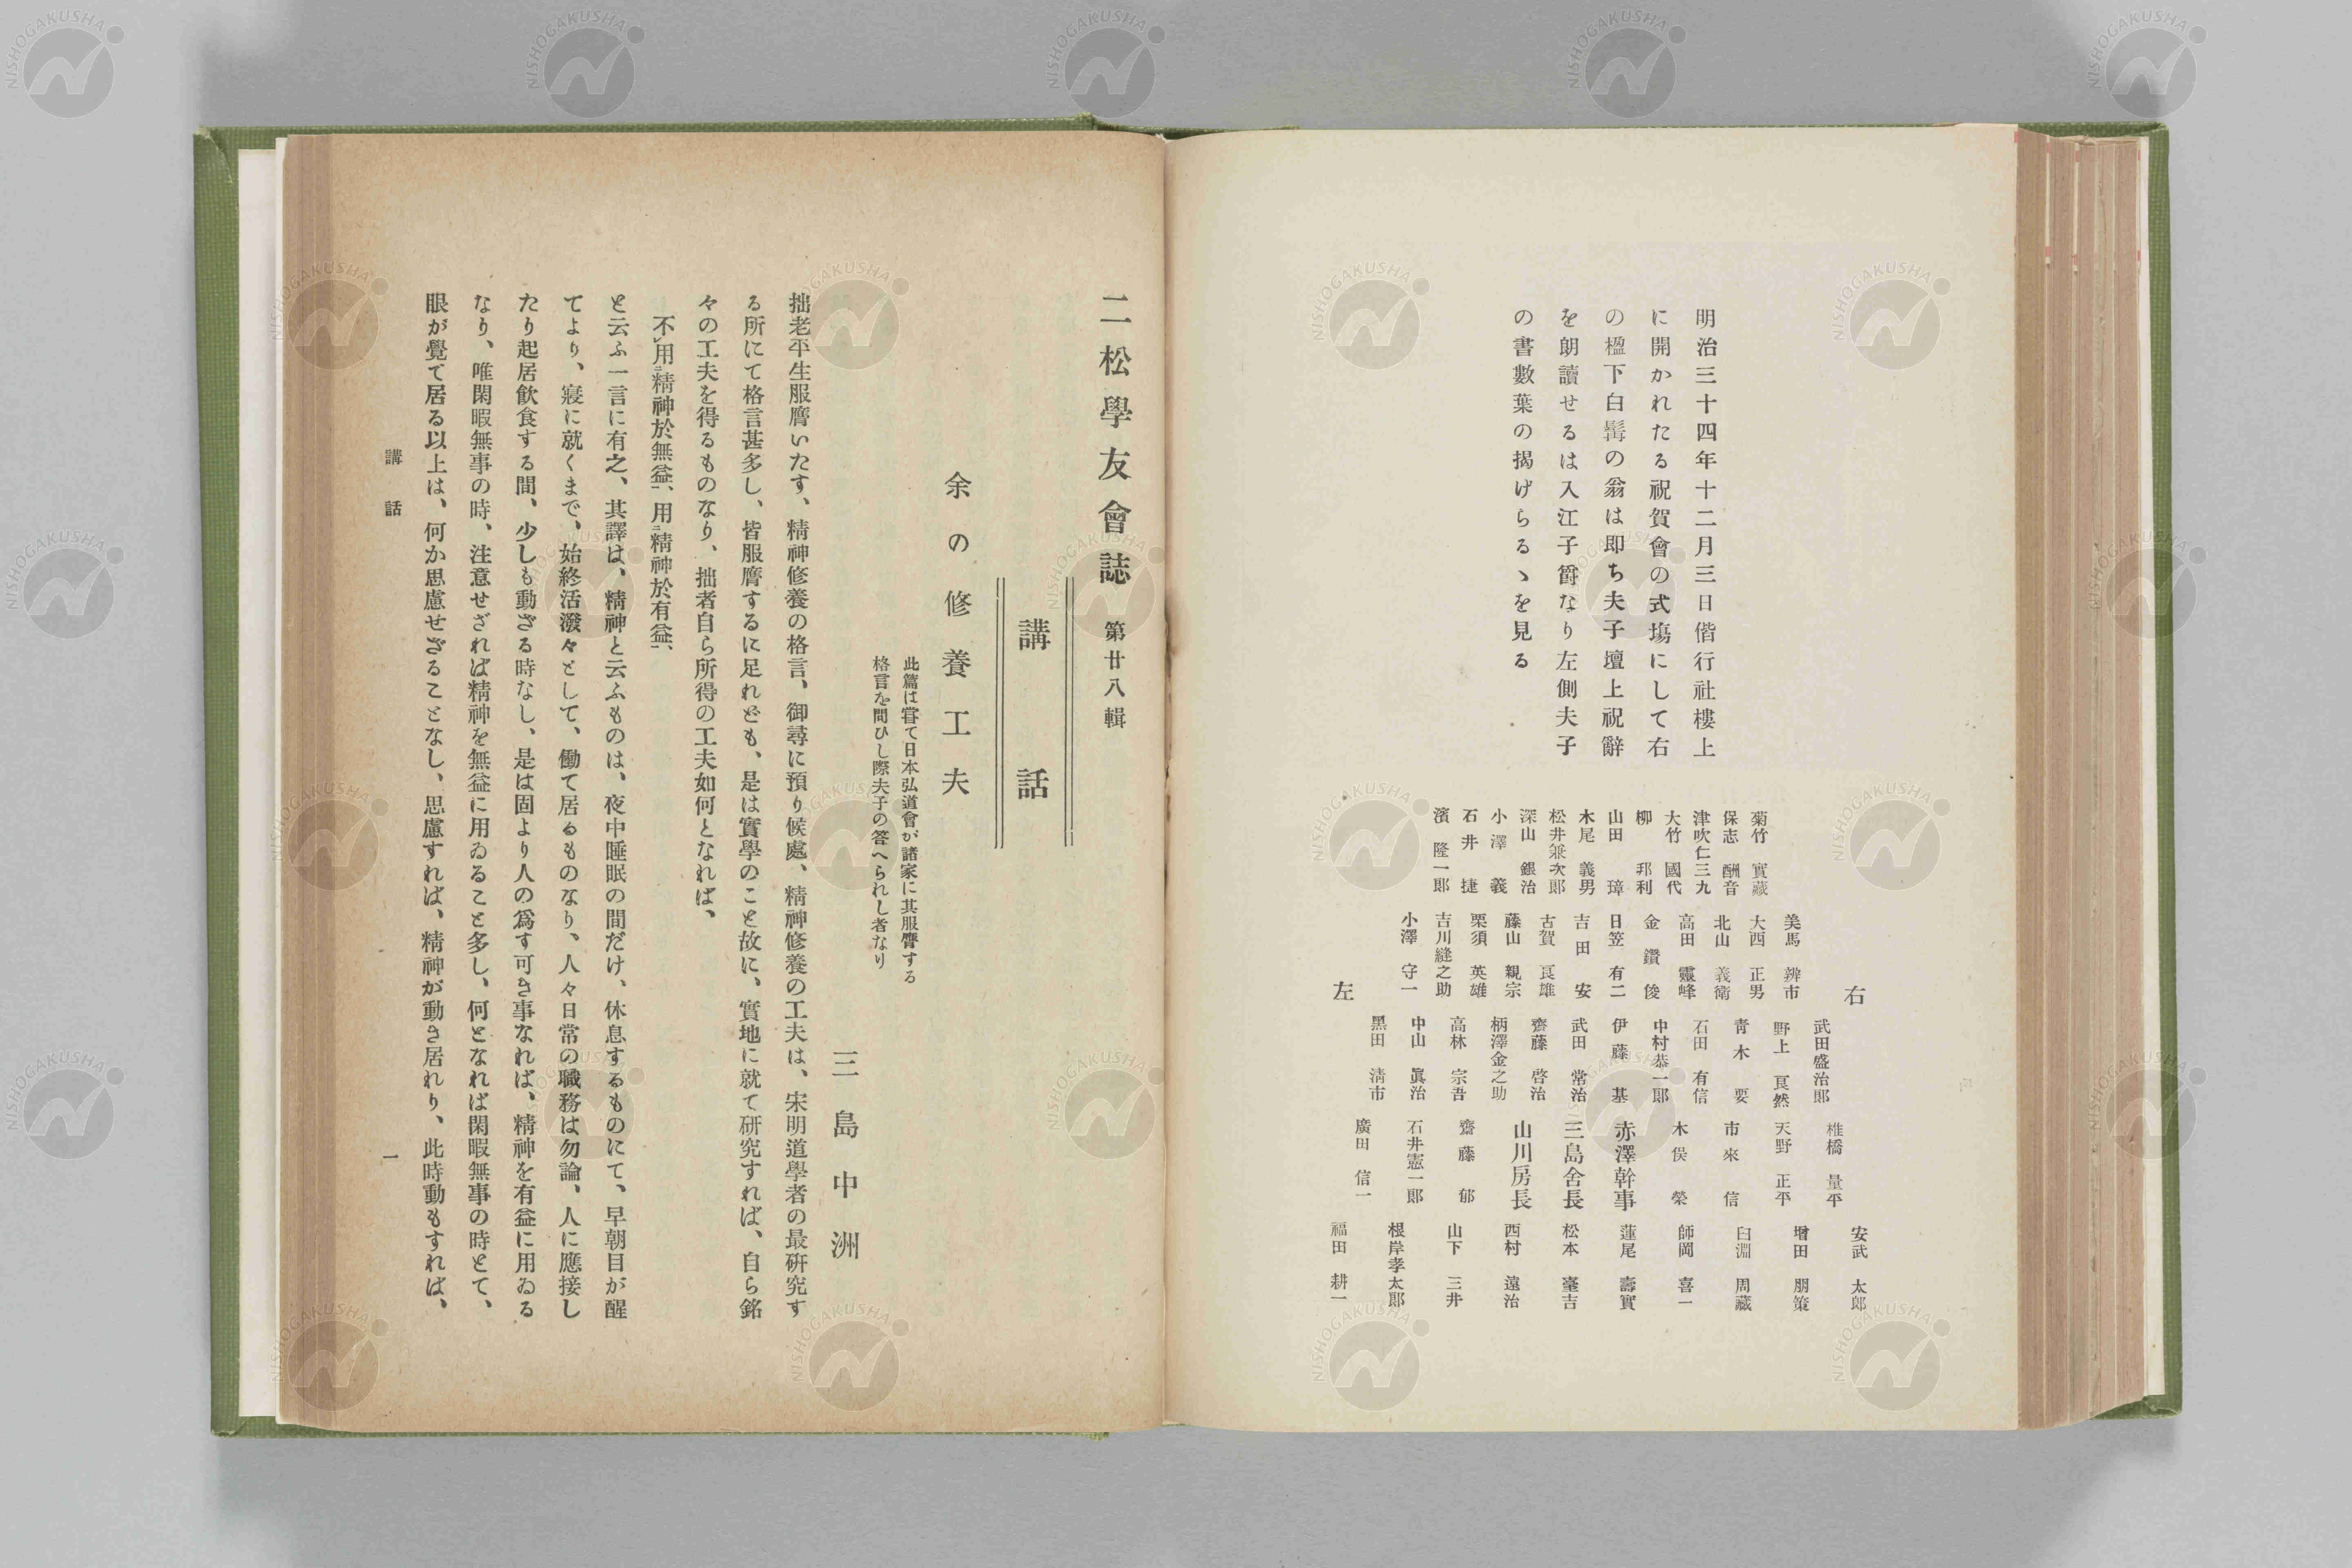 明治三十四年十二月三日偕行社樓上
に開かれたる祝賀會の式塲にして右
の楹下白髯の翁は即ち夫子壇上祝辭
を朗讀せるは入江子爵なり左側夫子
の書數葉の揭げらるゝを見る
右
菊竹 實藏
保志 酬音
津吹仁三九
大竹 國代
柳 邦利
山田 璋
木尾 義男
松井兼次郎
深山 銀治
小澤 義
石井 捷
濱 隆一郎
美馬 辨市
大西 正男
北山 義衛
高田 靈峰
金 鑽俊
日笠 有二
吉田 安
古賀 良雄
藤山 親宗
栗須 英雄
吉川縫之助
小澤 守一
武田盛治郎
野上 良然
青木 要
石田 有信
中村恭一郎
伊藤 基
武田 常治
齋藤 啓治
柄澤金之助
高林 宗吾
中山 眞治
黑田 淸市
椎橋 量平
天野 正平
市來 信
木俣 榮
赤澤幹事
三島舍長
山川房長
齋藤 郁
石井憲一郎
廣田 信一
安武 太郎
增田 朋策
臼淵 周藏
師岡 喜一
蓮尾 壽實
松本 臺吉
西村 遠治
山下 三井
根岸孝太郎
福田 耕一
左
二松學友會誌 第廿八輯
講話
余の修養工夫
此篇は甞て日本弘道會が諸家に其服膺する
格言を問ひし際夫子の答へられし者なり
三島中洲
拙老平生服膺いたす、精神修養の格言、御尋に預り候處、精神修養の工夫は、宋明道學者の最硏究す
る所にて格言甚多し、皆服膺するに足れども、是は實學のこと故に、實地に就て硏究すれば、自ら銘
々の工夫を得るものなり、拙者自ら所得の工夫如何となれば、
不レ用二精神於無益一、用二精神於有益一、
と云ふ一言に有之、其譯は、精神と云ふものは、夜中睡眠の間だけ、休息するものにて、早朝目が醒
てより、寢に就くまで、始終活潑々として、働て居るものなり、人々日常の職務は勿論、人に應接し
たり起居飮食する間、少しも動ざる時なし、是は固より人の爲す可き事なれば、精神を有益に用ゐる
なり、唯閑暇無事の時、注意せざれば精神を無益に用ゐること多し、何となれば閑暇無事の時とて、
眼が覺て居る以上は、何か思慮せざることなし、思慮すれば、精神が動き居れり、此時動もすれば、
講話
一
NISHOGAKUSHA